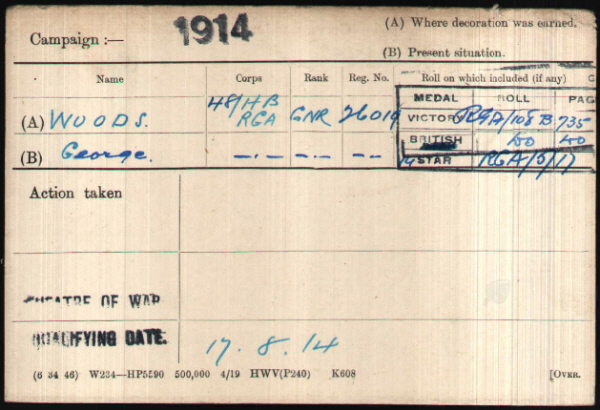 Campaign :— 1914 (A) Where decoration was earned.
(B) Present situation.
Name Corps Rank Reg. No. Roll on which included (if any)
MEDAL ROLL PAG
(A) WOODS. 48/HB RGA GNR 26019 VICTORY RGA/108 B 735
BRITISH do do
(B) George. —·— —·— —·— 14 STAR RGA/5/17
Action taken
THEATRE OF WAR
QUALIFYING DATE. 17. 8. 14
(6 34 46) W234—HP5590 500,000 4/19 HWV(P240) K608 [OVER.